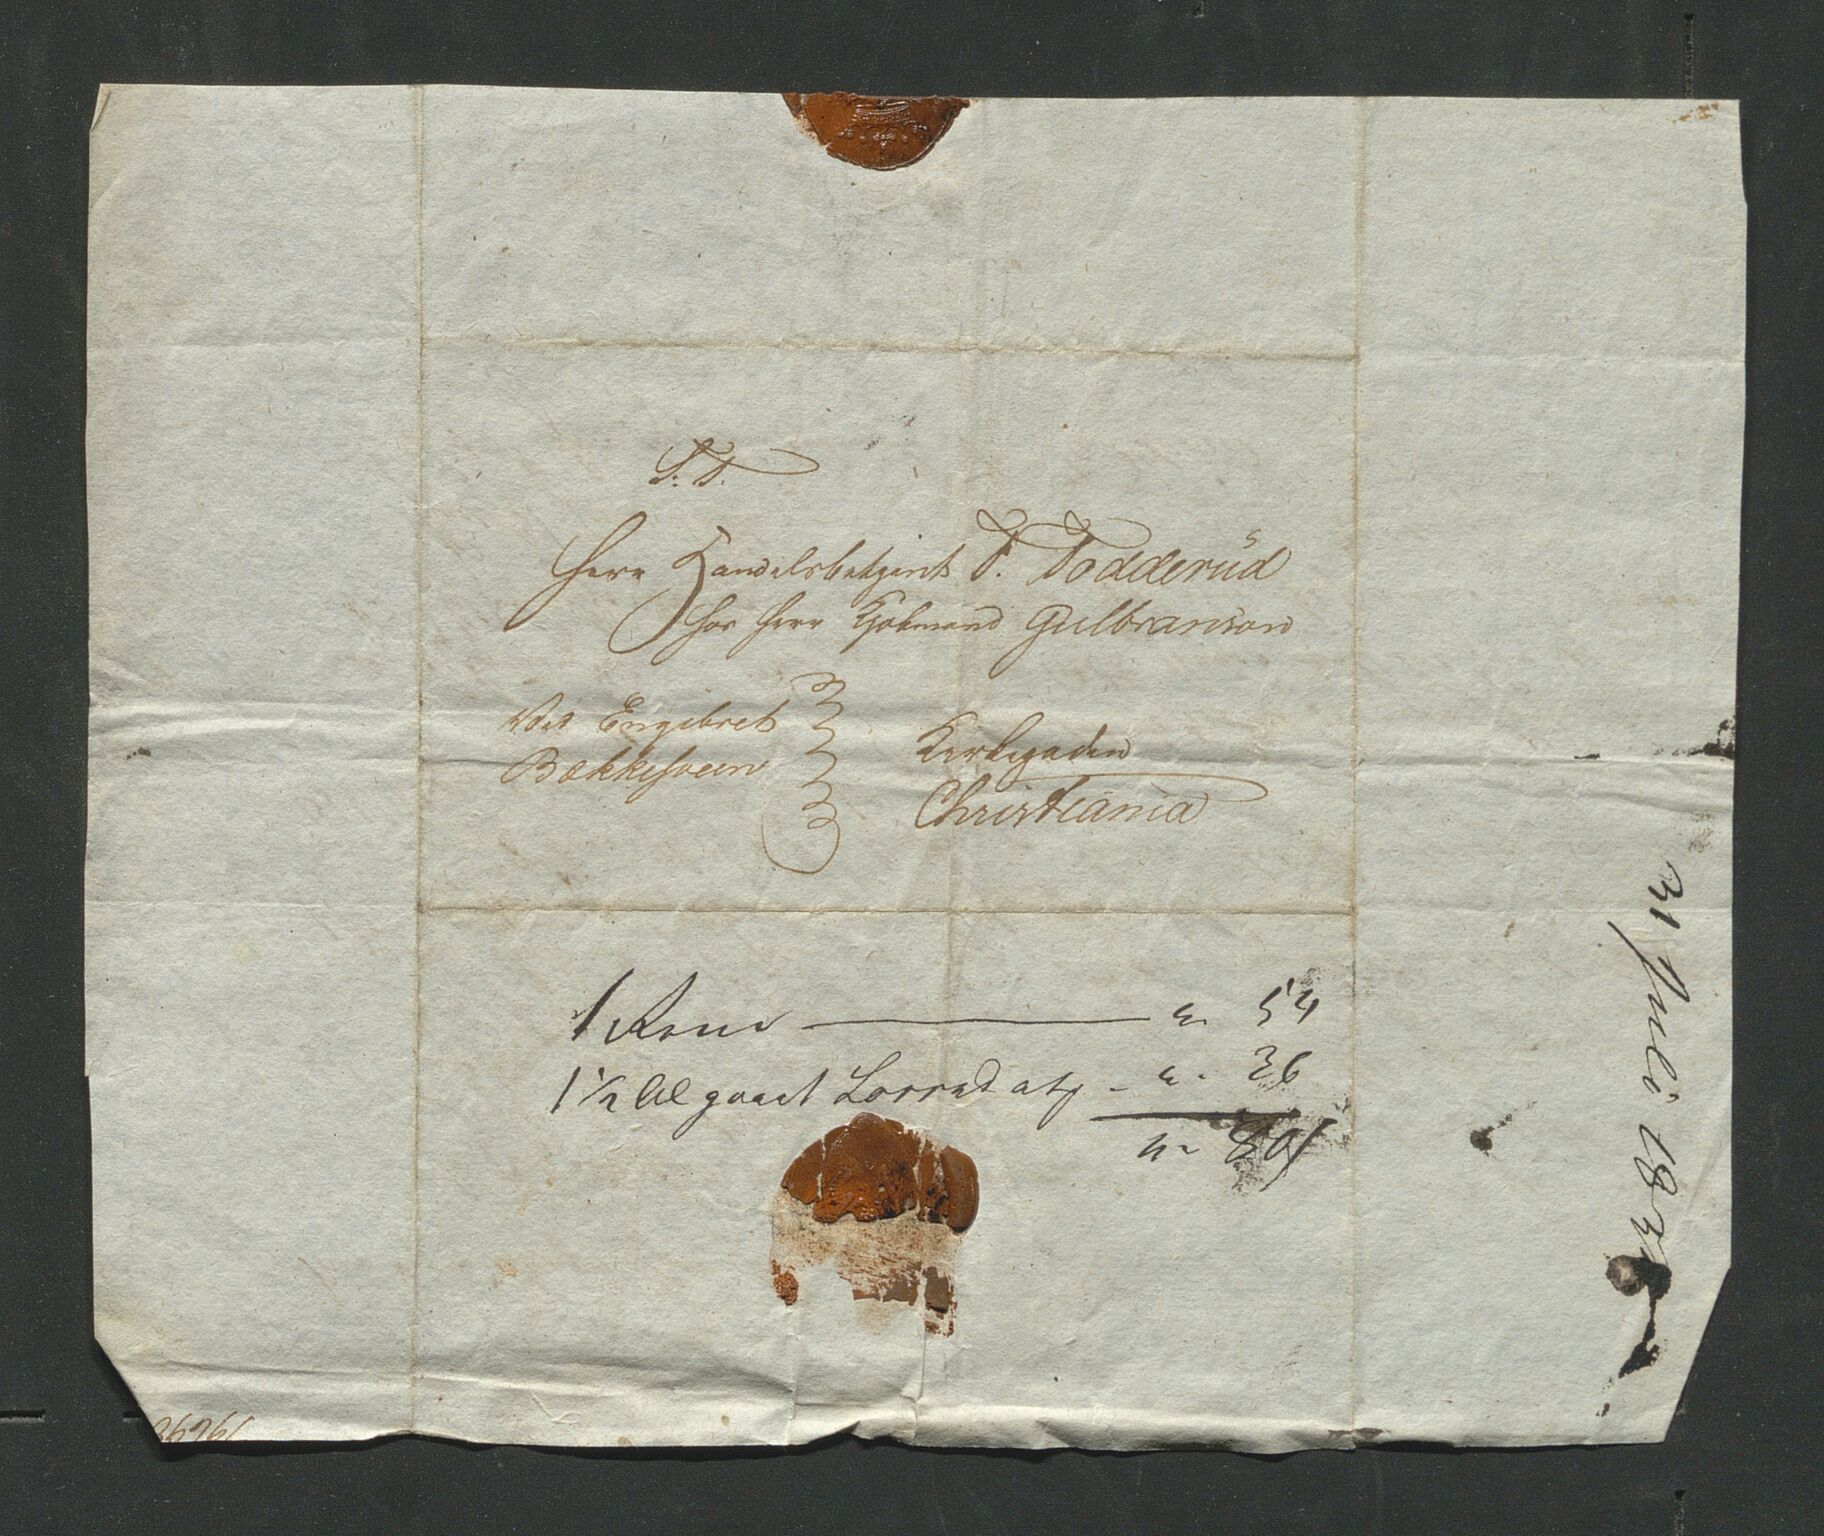 S. T.
Herr Handelsbetjent T. Todderud
hos Herr Kjøbmand Gulbranson
Ved Engebret
Bækkesveen
Kirkegaden
Christiania
1 54
1 1/2 Al graat 36
31 Juli 183